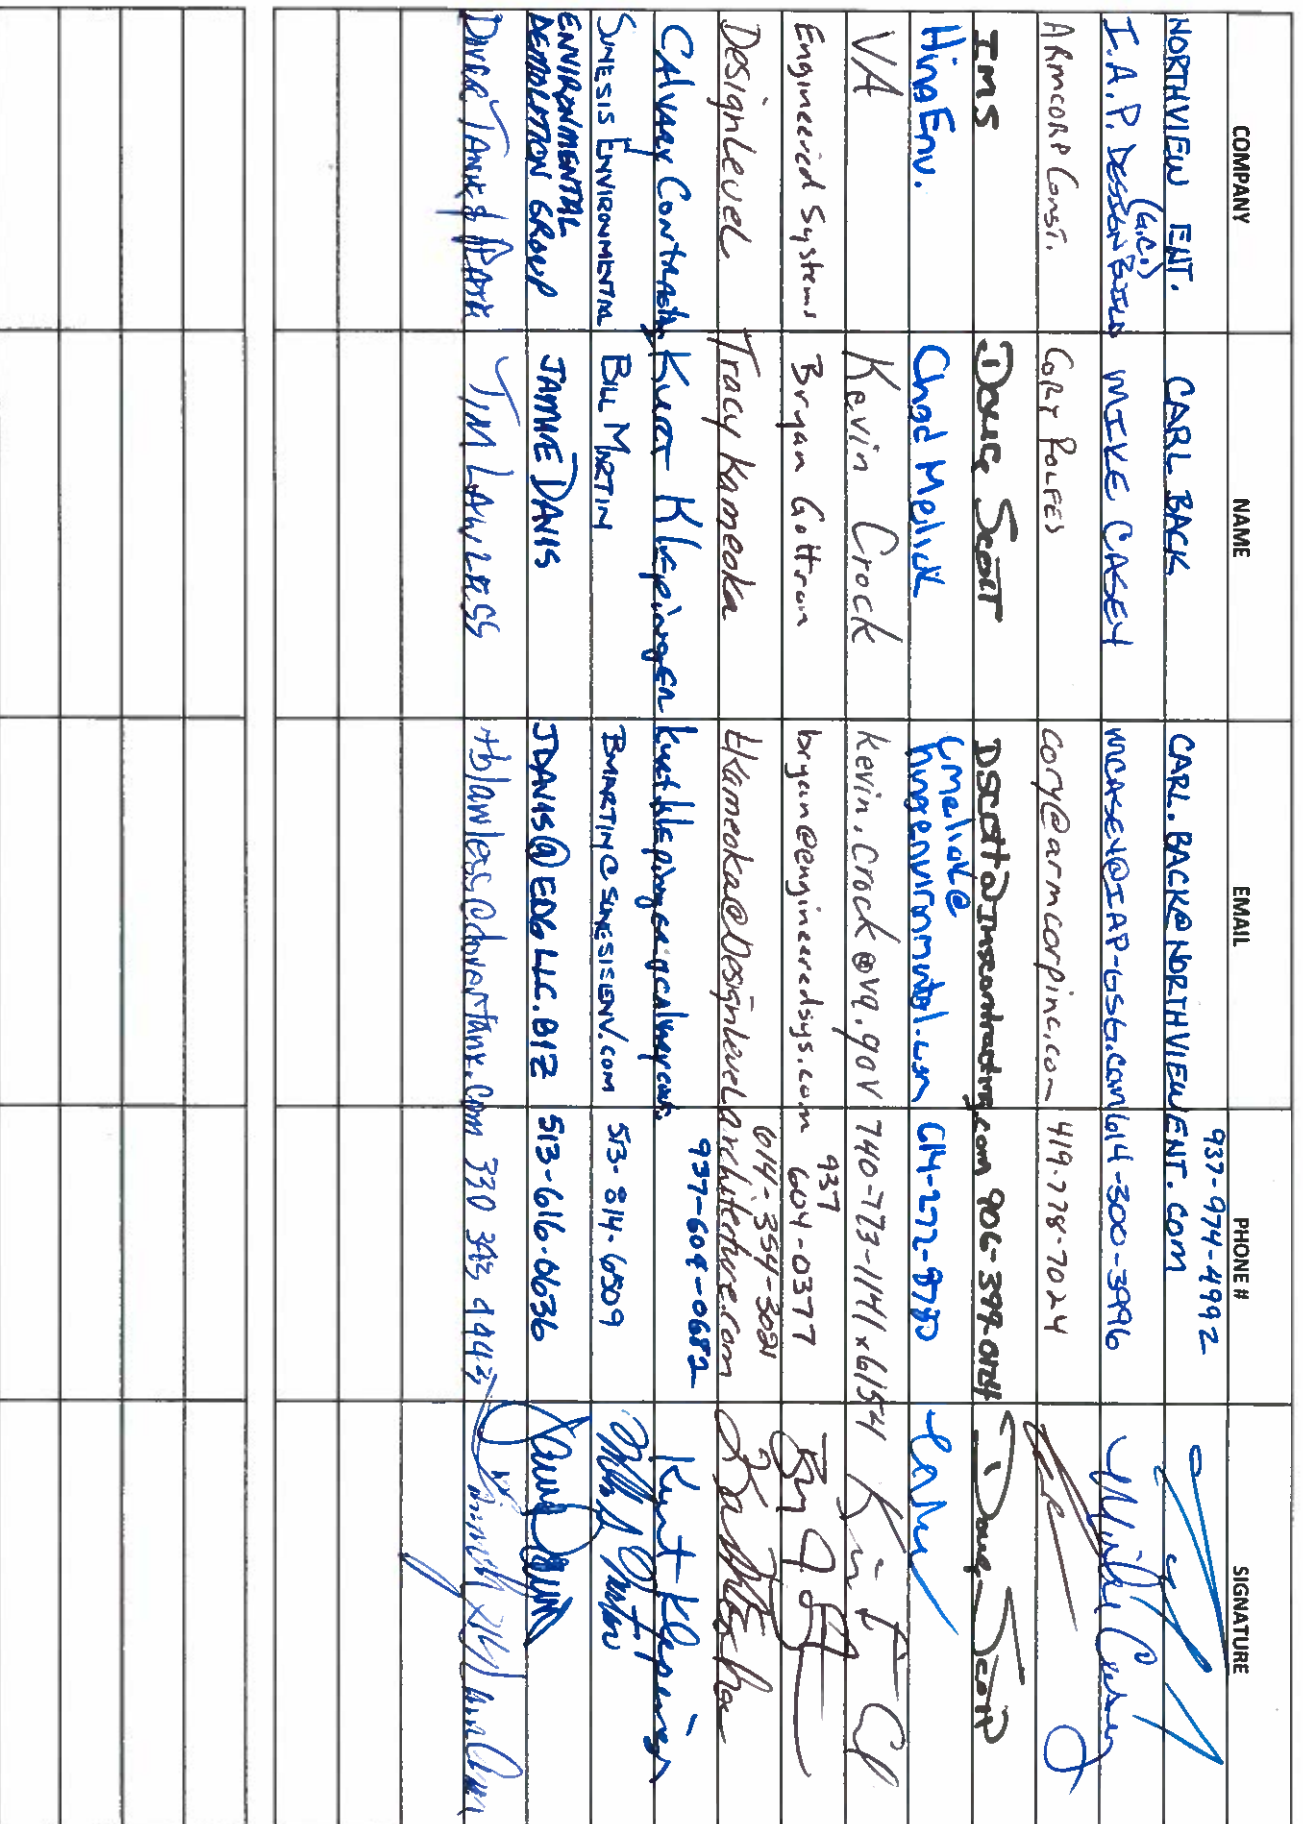 COMPANY NAME EMAIL PHONE # SIGNATURE
NORTHVIEW ENT. CARL BACK CARL.BACK@NORTHVIEWENT.COM 937-974-4992
I.A.P. DESIGN BUILD (G.C.) MIKE CASEY MCASEY@IAP-GSG.com 614-300-3996 Mike Casey
ARMCORP CONST. CORY ROLFES cory@armcorpinc.com 419-778-7024
IMS Doug Scott DSCOTT@IMScontracting.com 906-399-0124 Doug Scott
Hina Env. Chad Melick Cmelick@ 614-272-8780
VA Kevin Crock kevin.crock@va.gov 740-773-1141 x6154
Engineered Systems Bryan Gottron bryan@engineeredsys.com 937 604-0377
DesignLevel Tracy Kameoka tkameoka@Designlevelarchitecture.com 614-354-3021
Calvary Contracting Kurt Klepinger 937-609-0682 Kurt Klepinger
SUNESIS ENVIRONMENTAL BILL MARTIN BMARTIN@SUNESISENV.com 513-814-6509
ENVIRONMENTAL DEMOLITION GROUP JAMIE DAVIS JDAVIS@EDGLLC.BIZ 513-616-0636
TIM LAWLESS 330 343 4443